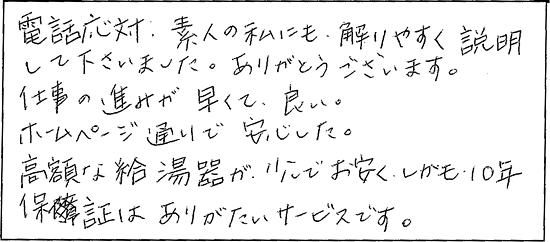 電話応対、素人の私にも、解りやすく説明
して下さいました。ありがとうございます。
仕事の進みが早くて、良い。
ホームページ通りで安心した。
高額な給湯器が、でお安く、しかも、10年
保障証はありがたいサービスです。